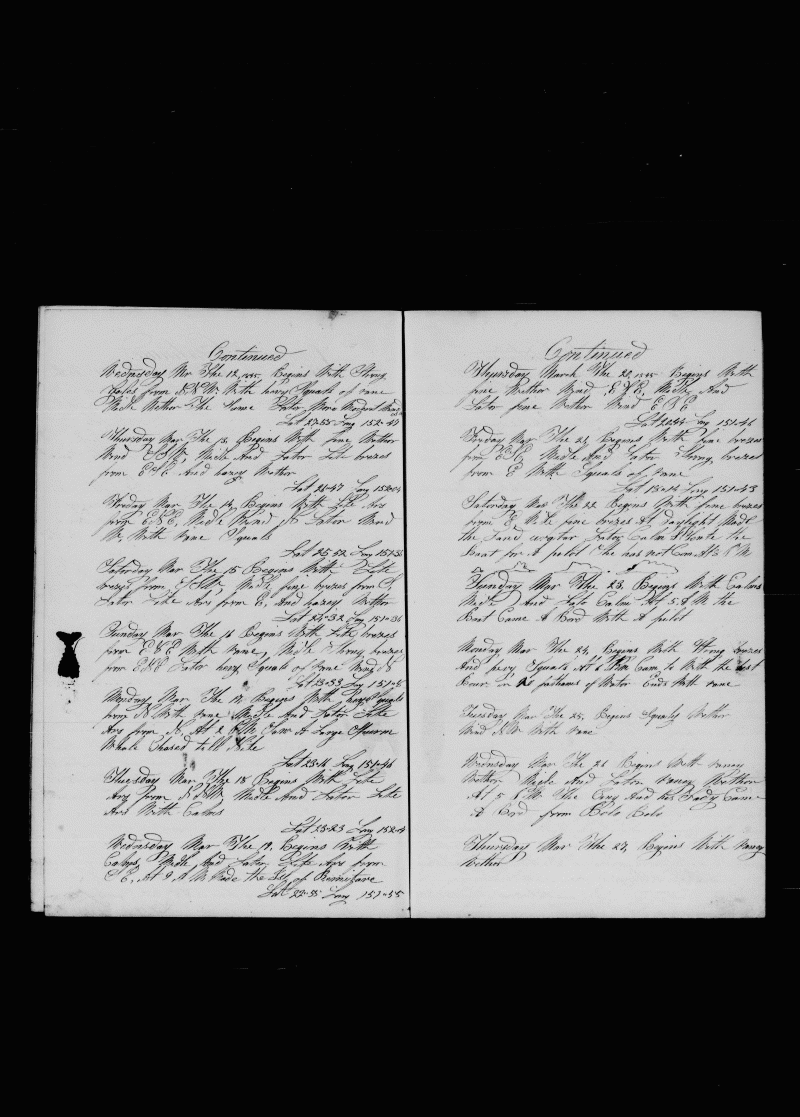 Continued
Wednesday Mar The 12, 1845 Begins With Strong
Gales from N.N.W. With hevy Squals of rane
Midle Wether The Same Later More Modrat Wind
Lat 27-55 Long 152-47
Thursday Mar The 13, Begins With fine Wether
Wind S.S.W. Midle And Later Lite brezes
from E.S.E. And hazey Wether
Lat 26-47 Long 152-04
Friday Mar The 14, Begins With Lite Ars
from E.N.E. Midle Wind N. Later Wind
W. With rane Squals
Lat 25-52 Long 151-33
Saturday Mar The 15 Begins With Lite
brezes from S.S.W. Midle fine brezes from S.
Later Lite Ars from E. And hazey Wether
Lat 24-32 Long 151-36
Sunday Mar The 16 Begins With Lite brezes
from E.N.E With rane, Midle Strong brezes
from E.N.E Later hevy Squals of rane Wind N
Lat 23-33 Long 151-5
Monday Mar The 17 Begins With hevy Squals
from N With rane Midle And Later Lite
Ars from N. At 2 P.M. Saw A Large Sparme
Whale Chased till Nite
Lat 23-16 Long 151-46
Tuesday Mar The 18 Begins With Lite
Ars from N.N.W. Midle And Later Lite
Ars With Calms
Lat 23-23 Long 152-4
Wednesday Mar The 19, Begins With
Calms, Midle And Later Lite Ars from
S.E. At 9 A M Made the Ile of Remitare
Lat 22-35 Long 151-55
Continued
Thursday March The 20, 1845 Begins With
fine Wether Wind E.N.E, Midle And
Later fine Wether Wind E.N.E
Lat 20-44 Long 151-46
Friday Mar The 21, Begins With fine brezes
from E.S.E, Midle And Later Strong brezes
from E With Squals of rane
Lat 18-14 Long 151-43
Saturday Mar The 22 Begins With fine brezes
from E Midle fine brezes At Daylight Made
the Land Later Calm Sent the
Boat for A pilot he has not Com At 3 P M
Sunday Mar The 23, Begins With Calms
Midle And Late Calm At 5 A M the
Boat Came A Bord With A pilot
Monday Mar The 24, Begins With Strong brezes
And hevy Squals At 6 P M Cam to With the best
Bour in 18 pathams of Water Ends With rane
Tuesday Mar The 25, Begins Squaly Wether
Wind N.W. With rane
Wednesday Mar The 26 Begins With raney
Wether Midle And Later raney Wether
At 5 P.M. The King And his Lady Came
A Bord from Bola Bola
Thursday Mar The 27, Begins With raney
Wether